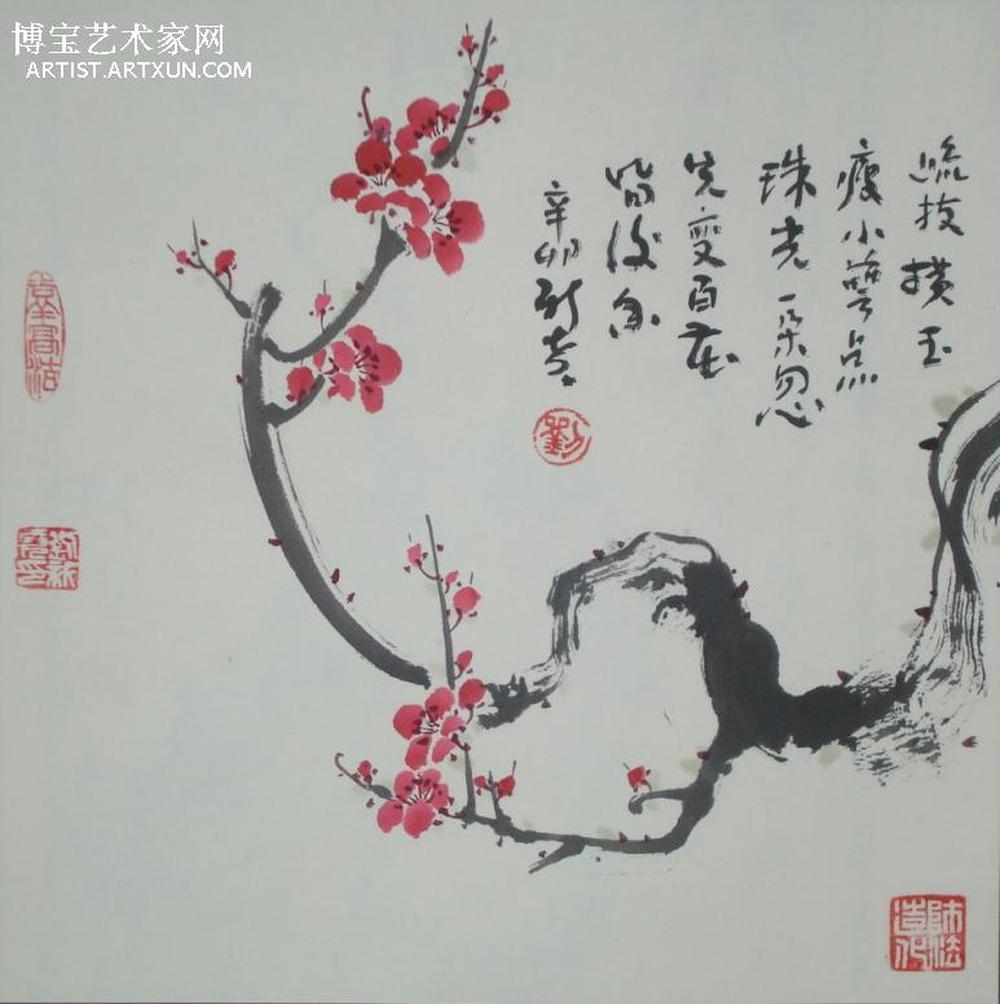 博宝艺术家网
ARTIST.ARTXUN.COM
疏枝横玉
瘦小萼点
珠光一朵忽
先变百花
皆后香
辛卯新亮
劉
師法造化